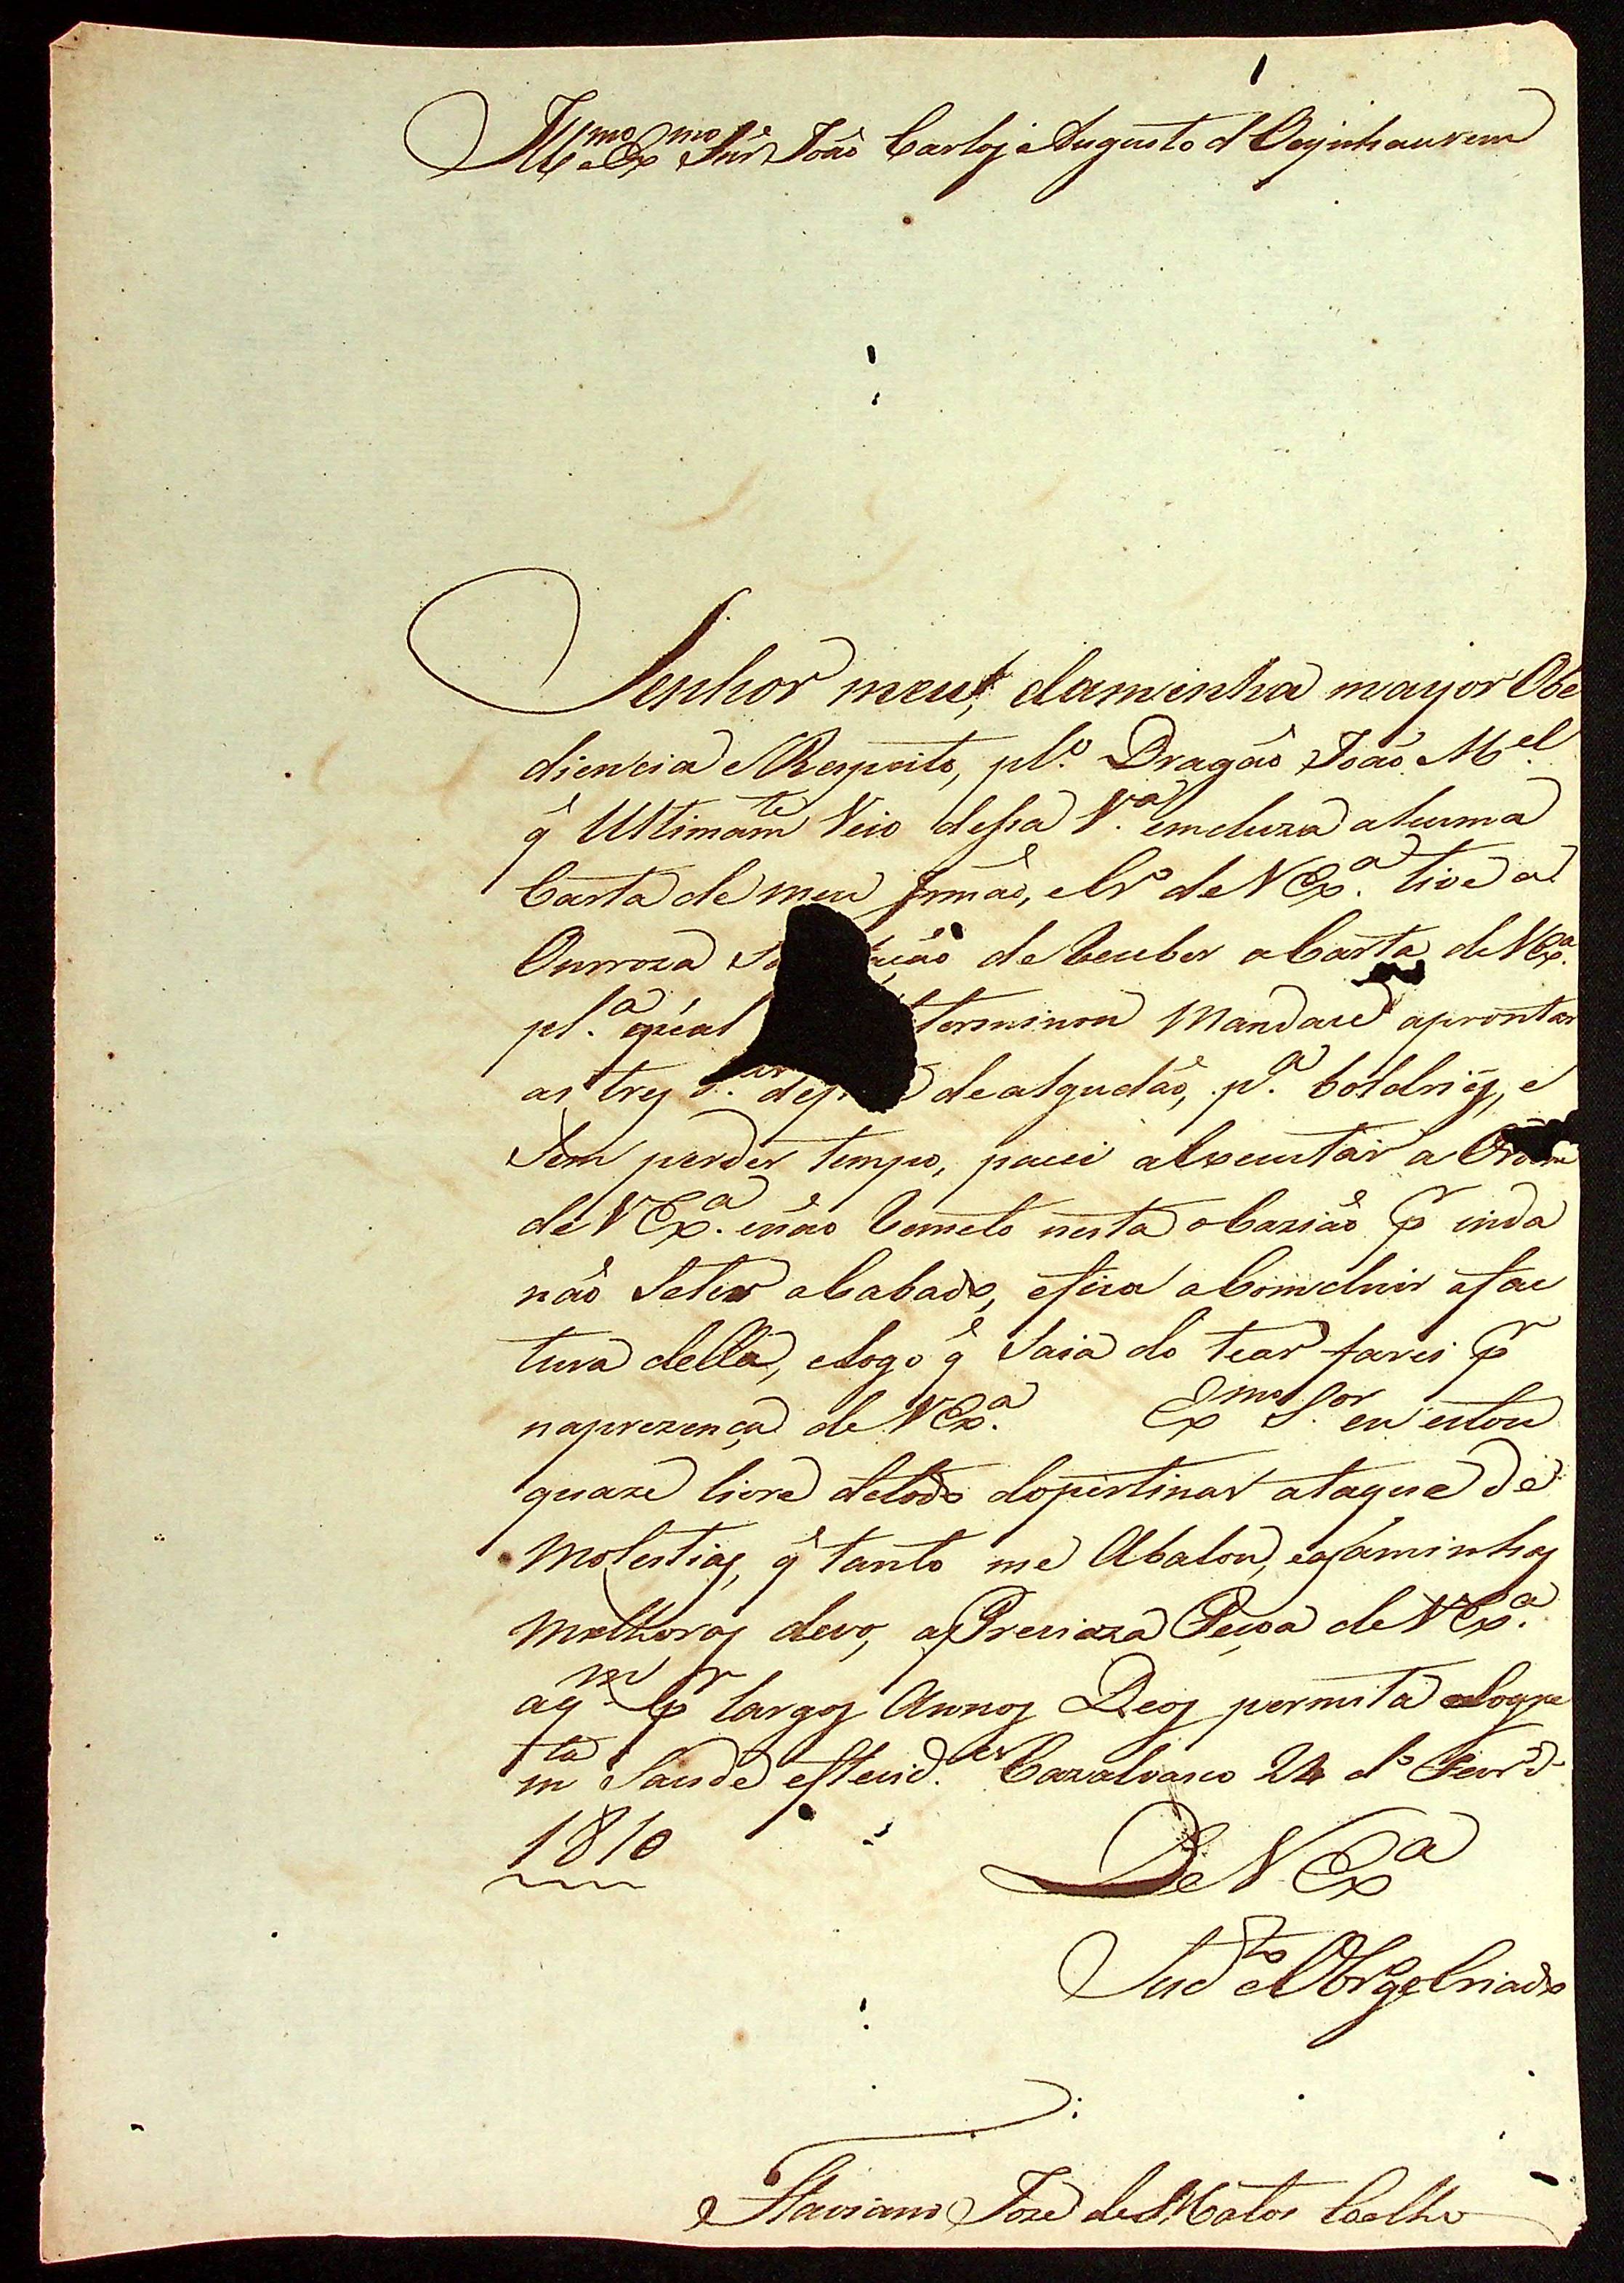 Ill.mo e Ex.mo Snr João Carlos Augusto d'Oeynhausem
Senhor meu, daminha mayor Obe
diencia e Respeito, pl.o Dragão João M.el
q̃ Ultimam.te Veio dessa V.a emcluza ahuma
Carta de meu Irmão, e Cr.o de V Ex.a tive a
Onrroza Sa ção de Receber a Carta de V Ex.a
pl.a qual terminou Mandace aprontar
as trez de algudão, p.a boldriés, e
Sem perder tempo, pacei a Executár a Ordem
de V Ex.a enão Remeto nesta ocazião pr inda
não Seter acabado, efica aComcluir afac
tura della, elogo q̃ Saia do tear farei pr
naprezença de V Ex.a Ex.mo S.or eu estou
quaze livre detodo dopertinas ataque de
Molestias, q̃ tanto me Abalou, eas minhas
Melhoras devo, a Precioza Peçoa de V Ex.a
aq.m pr largos Annos Deos permita Logre
m.ta Saude efelicid.es Cazalvasco 24 d.o Fevr.o d
1810
De V Ex.a
Sud.to e Obrg.o Criado
Flaviano Joze de Matos Coelho